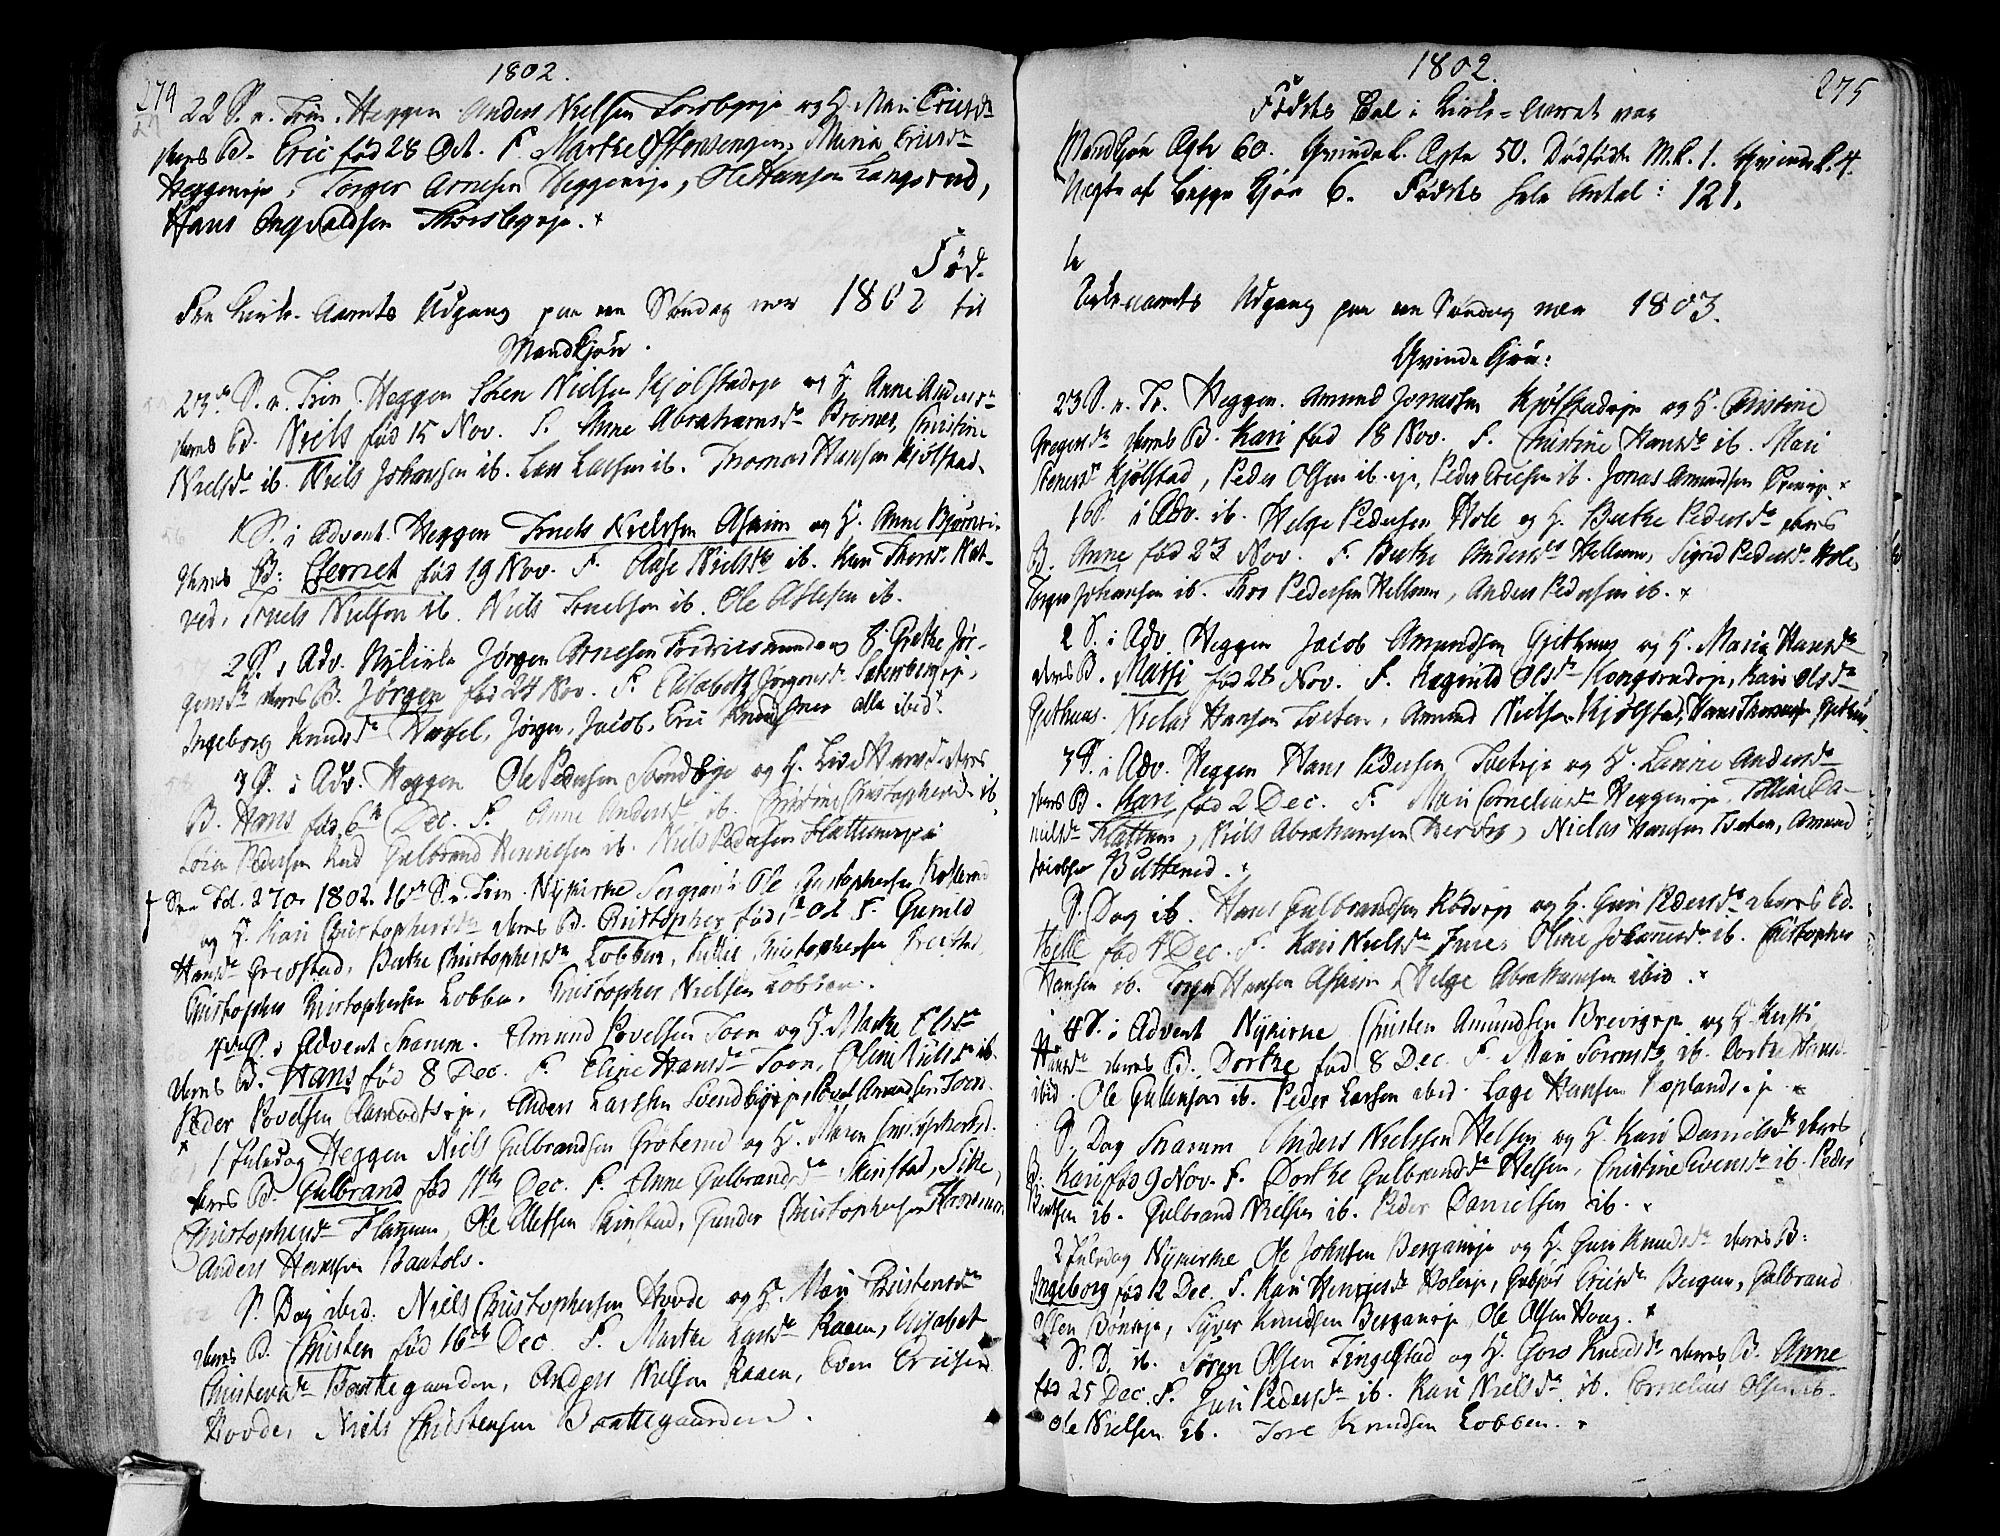 274
1802.
22 S. n. Trin. Heggen Anders Nielsen Torsbyeje og H. Mari Ericsd.
deres B. Eric fød 28 Oct. F. Marthe Maria Ericsd.
Heggeneje, Torger Arnesen Heggeneje, Ole Hansen Langerud,
Hans Ingvaldsen Thorsbyeje.
Fød-
Fra Kirke-Aarets Udgang paa een Søndag nær 1802 til
Mandkjøn.
23de S. n. Trin Heggen Sten Nielsen Kjølstadeje og H. Anne Andersd.
deres B. Niels fød 15 Nov. F. Anne Abrahamsd. Christine
Nielsd. ib. Niels Johansen ib. Lars Larsen ib. Thomas Hansen Kjølstad.
1 S. i Advent Heggen Truels Nielsen Askim og H. Anne
deres B: fød 19 Nov. F. Nielsd. ib. Kari Thorsd. Nat-
ved, Truels Nielsen ib. Niels Truelsen ib. Ole Aslesen ib.
2 S. i Adv. Nykirke Jørgen Arnesen H. Grethe Jør-
gensd. deres B. Jørgen fød 24 Nov. F. Elisabeth Jørgensd. Sæterbergeje,
Ingeborg Knudsd. Jørgen, Jacob, Eric alle ibid.
3 S. i Adv. Heggen Ole Pedersen og H. Live Hansd. deres
B. Hans fød 6te Dec. F. Anne Andersd. ib. Christine Christophersd. ib.
Pedersen Gulbrand Henricsen ib. Niels Pedersen Flattumeje
See Fol. 270. 1802. 16de S. n. Trin. Nykirke Sergeant Ole Christophersen
og H. Kari Christophersd. deres B. Christopher fød 1 Oct F. Gunild
Hansd. Grevstad, Berthe Christophersd. Lobben, Christophersen
Christopher Christophersen Lobben. Christopher Nielsen Lobben.
4de S. i Advent Snarum. Amund Povelsen Soon og H. Marthe Olsd.
deres B. Hans fød 8 Dec. F. Eline Hansd. Soon, Oline Nielsd. ib.
Peder Povelsen Aamodtseje, Anders Larssen Svendbyeje, Povel Amundsen Soon.
1 Juledag Heggen Niels Gulbrandsen Grøterud og H. Maren Christophersd.
deres B. Gulbrand fød 11te Dec. F. Anne Gulbrandsd. Skinstad, Sikke
Christophersd. Ole Ellefsen Skinstad, Gunder Christophersen
Anders Hansen
S. Dag ibid. Niels Christophersen Hovde og H. Mari Christensd.
deres B. Christen fød 16de Dec. F. Marthe Larsd. Raaen, Elisabet
Christensd. Braattegaarden, Anders Nielsen Raaen, Even Ericsen
Hovde, Niels Christensen Braattegaarden.
1802.
275
Fødtes Tal i Kirke-Aaret var
Mandkjøn Ægte 60. Qvindek. Ægte 50. Dødfødte M.k. 1. Qvindek. 4.
Uægte af begge Kjøn 6. Fødtes hele Antal: 121.
te
Kirke-Aarets Udgang paa een Søndag nær 1803.
Qvindekjøn:
23 S. n. Tr. Heggen. Amund Jonassen Kjølstadeje og H. Christine
Gregersd. deres B. Kari fød 18 Nov. F. Christine Hansd. ib. Mari
Stensd. Kjølstad, Peder Olsen ib. eje, Peder Ericsen ib. Jonas Amundsen
1 S. i Adv. ib. Helge Pedersen Hole og H. Berthe Pedersd. deres
B. Anne fød 23 Nov. F. Berthe Andersd. Hellum, Sigrid Pedersd. Hole,
Torger Johansen ib. Thor Pedersen Hellum, Anders Pedersen ib.
2 S. i Adv. Heggen Jacob Amundsen Gjethuus og H. Maria Hansd.
deres B. Mathi fød 28 Nov. F. Ragnild Olsd. Kongsrudeje, Kari Olsd.
Gjethuus. Niclas Hansen Tveten, Amund Nielsen Kjølstad, Hans
3 S. i Adv. Heggen Hans Pedersen Tveteje og H. Larine Andersd.
deres B. Mari fød 2 Dec. F. Mari Corneliusd. Heggeneje, Da-
nielsd. Flattum, Niels Abrahamsen Hersby, Niclas Hansen Tveten, Amund
Jacobsen
S. Dag ib. Hans Gulbrandsen og H. Guri Pedersd. deres B.
Helle fød 4 Dec. F. Kari Nielsd. Oline Johannesd. ib. Christopher
Hansen ib. Torger Hansen Askim, Helge Abrahamsen ibid.
4 S. i Advent Nykirke Christen Amundsen Brevigeje og H. Kisti
Hansd. deres B. Dorthe fød 8 Dec. F. Mari ib. Dorthe Hansd.
ibid. Ole Gullensen ib. Peder Larsen ibid. Lage Hansen
S. Dag Snarum Anders Nielssen Helsen og H. Kari Danielsd. deres
B. Kari fød 9 Nov. F. Dorthe Gulbrandsd. Helsen, Christine Evensd. ib. Peder
ib. Gulbrand Nielsen ib. Peder Danielsen ib.
2 Juledag Nykirke Ole Johnsen Berganeje og H. Guri Knudsd. deres B:
Ingeborg fød 12 Dec. F. Kari Henricsd. Holeeje, Gubjør Ericsd. Bergan, Gulbrand
Olsen Syver Knudsen Berganeje Ole Olsen Houg.
S. D. ib. Søren Olsen Tingelstad og H. Goro Knudsd. deres B. Anne
fød 25 Dec. F. Guri Pedersd. ib. Kari Nielsd. ib. Cornelius Olsen ib.
Ole Nielsen ib. Tore Knudsen Lobben.